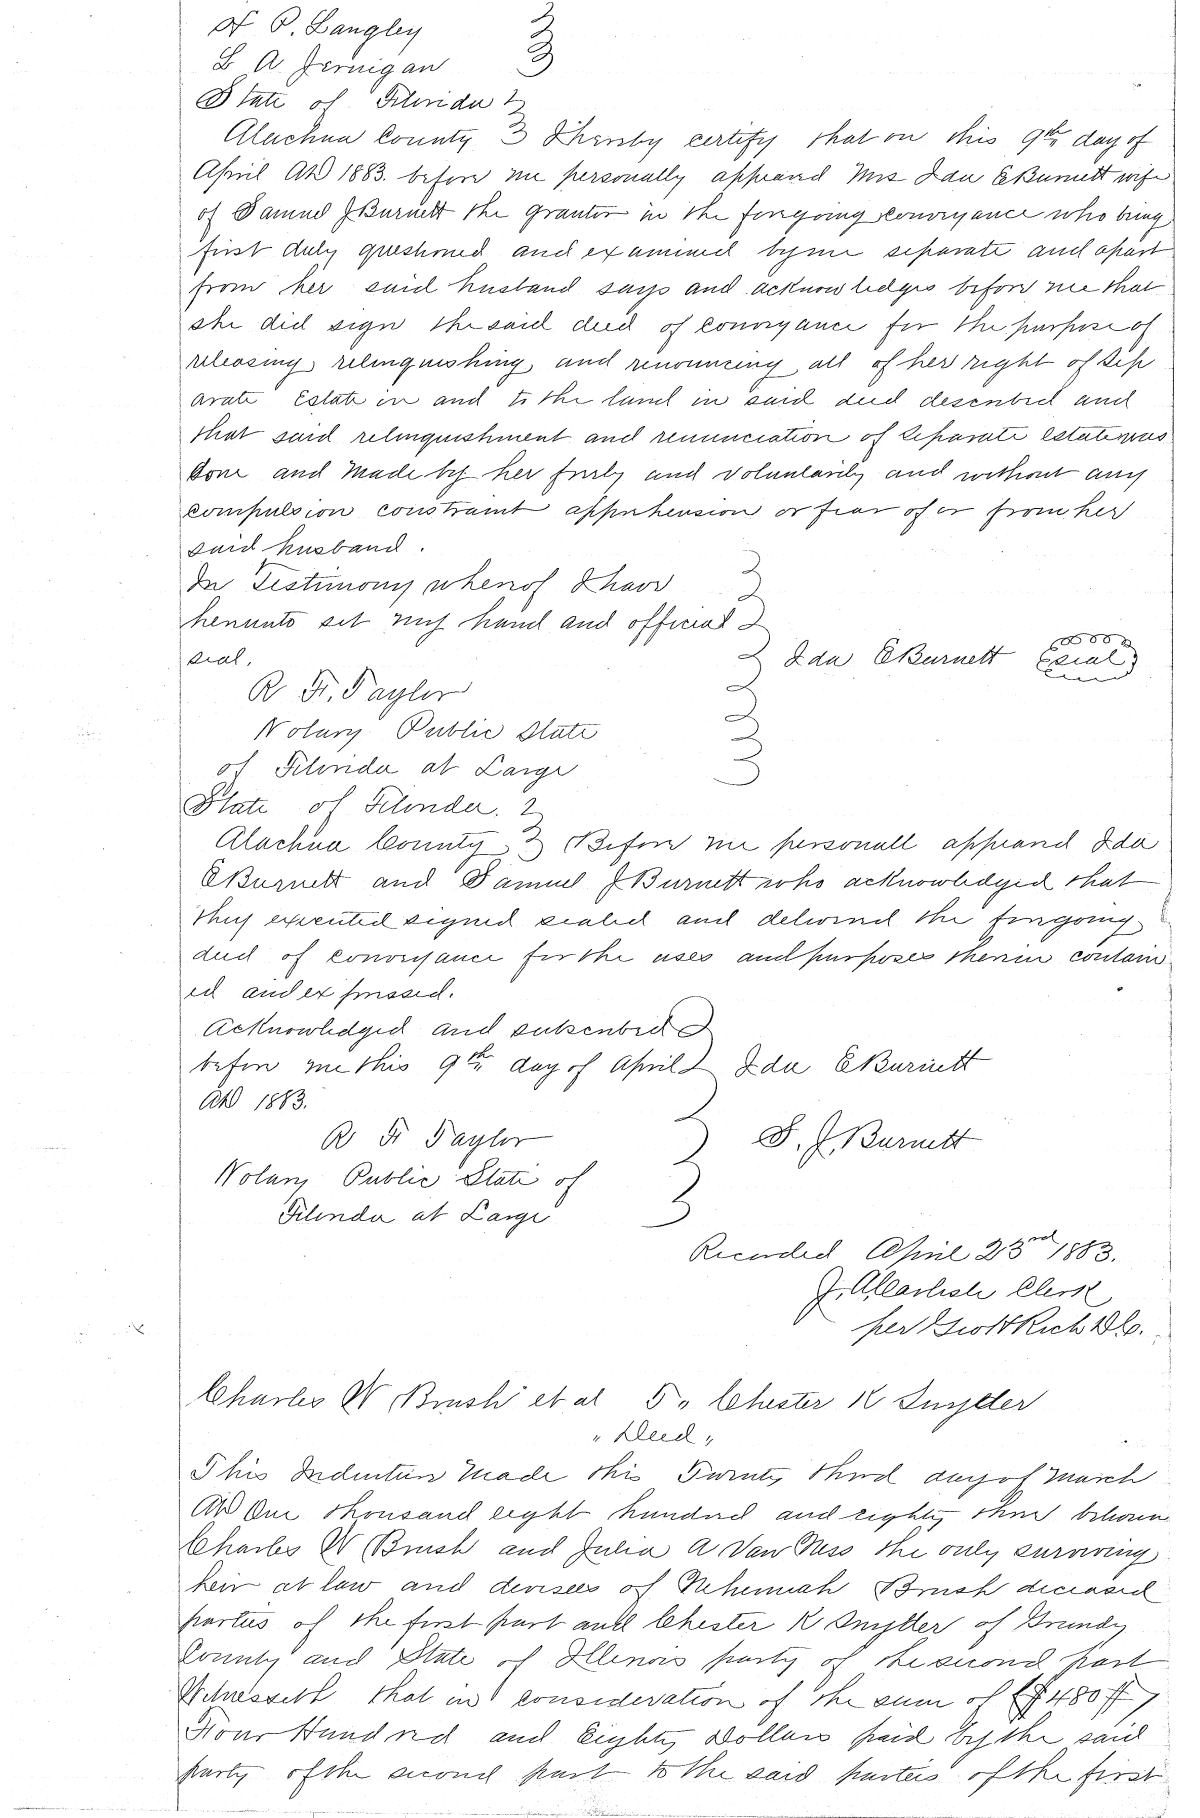 N P. Langley
L A Jernigan
State of Florida
Alachua County I hereby certify that on this 9th day of
April AD 1883. before me personally appeared Mrs Ida E Burnett wife
of Samuel J Burnett the grantor in the foregoing conveyance who being
first duly questioned and examined by me separate and apart
from her said husband says and acknowledges before me that
she did sign the said deed of conveyance for the purpose of
releasing, relinquishing, and renouncing all of her right of Sep
arate Estate in and to the land in said deed described and
that said relinquishment and renunciation of Separate estate was
done and made by her freely and voluntarily and without any
compulsion constraint apprehension or fear of or from her
said husband.
In Testimony whereof I have
hereunto set my hand and official
seal.
Ida E Burnett (seal)
R F. Taylor
Notary Public State
of Florida at Large
State of Florida.
Alachua County Before me personall appeared Ida
E Burnett and Samuel J Burnett who acknowledged that
they executed signed sealed and delivered the foregoing
deed of conveyance for the uses and purposes therein contain
ed and expressed.
Acknowledged and subscribed
before me this 9th day of April Ida E Burnett
AD 1883.
R F Taylor S. J. Burnett
Notary Public State of
Florida at Large
Recorded April 23rd 1883.
J. A. Carlisle Clerk
per Geo H Rich D C.
Charles W Brush et al To Chester K Snyder
"Deed"
This Indenture Made this Twenty third day of March
AD One thousand eight hundred and eighty three between
Charles W Brush and Julia A Van Ness the only surviving
heir at law and devisees of Nehemiah Brush deceased
parties of the first part and Chester K Snyder of Grundy
County and State of Illinois party of the second part
Witnesseth that in consideration of the sum of ($480
Four Hundred and Eighty Dollars paid by the said
party of the second part to the said parties of the first